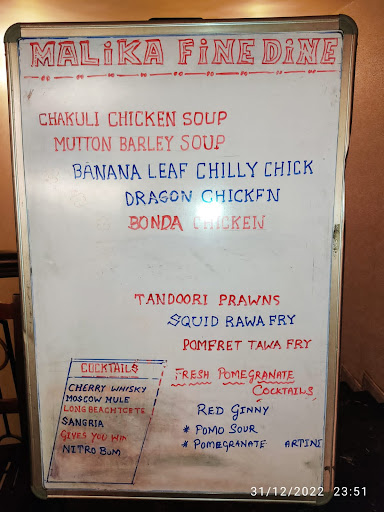 MALiKA FiNE DiNE
CHAKULI CHICKEN SOUP
MUTTON BARLEY SOUP
BANANA LEAF CHILLY CHICK
DRAGON CHICKEN
BONDA CHICKEN
TANDOORI PRAWNS
SQUID RAWA FRY
POMFRET TAWA FRY
COCKTAILS
CHERRY WHISKY
MOSCOW MULE
LONG BEACH
SANGRIA
GIVES YOU
NITRO
FRESH POMEGRANATE
COCKTAILS
RED GINNY
* FOMO SOUR
* POMEGRANATE ARTINI
31/12/2022 23:51